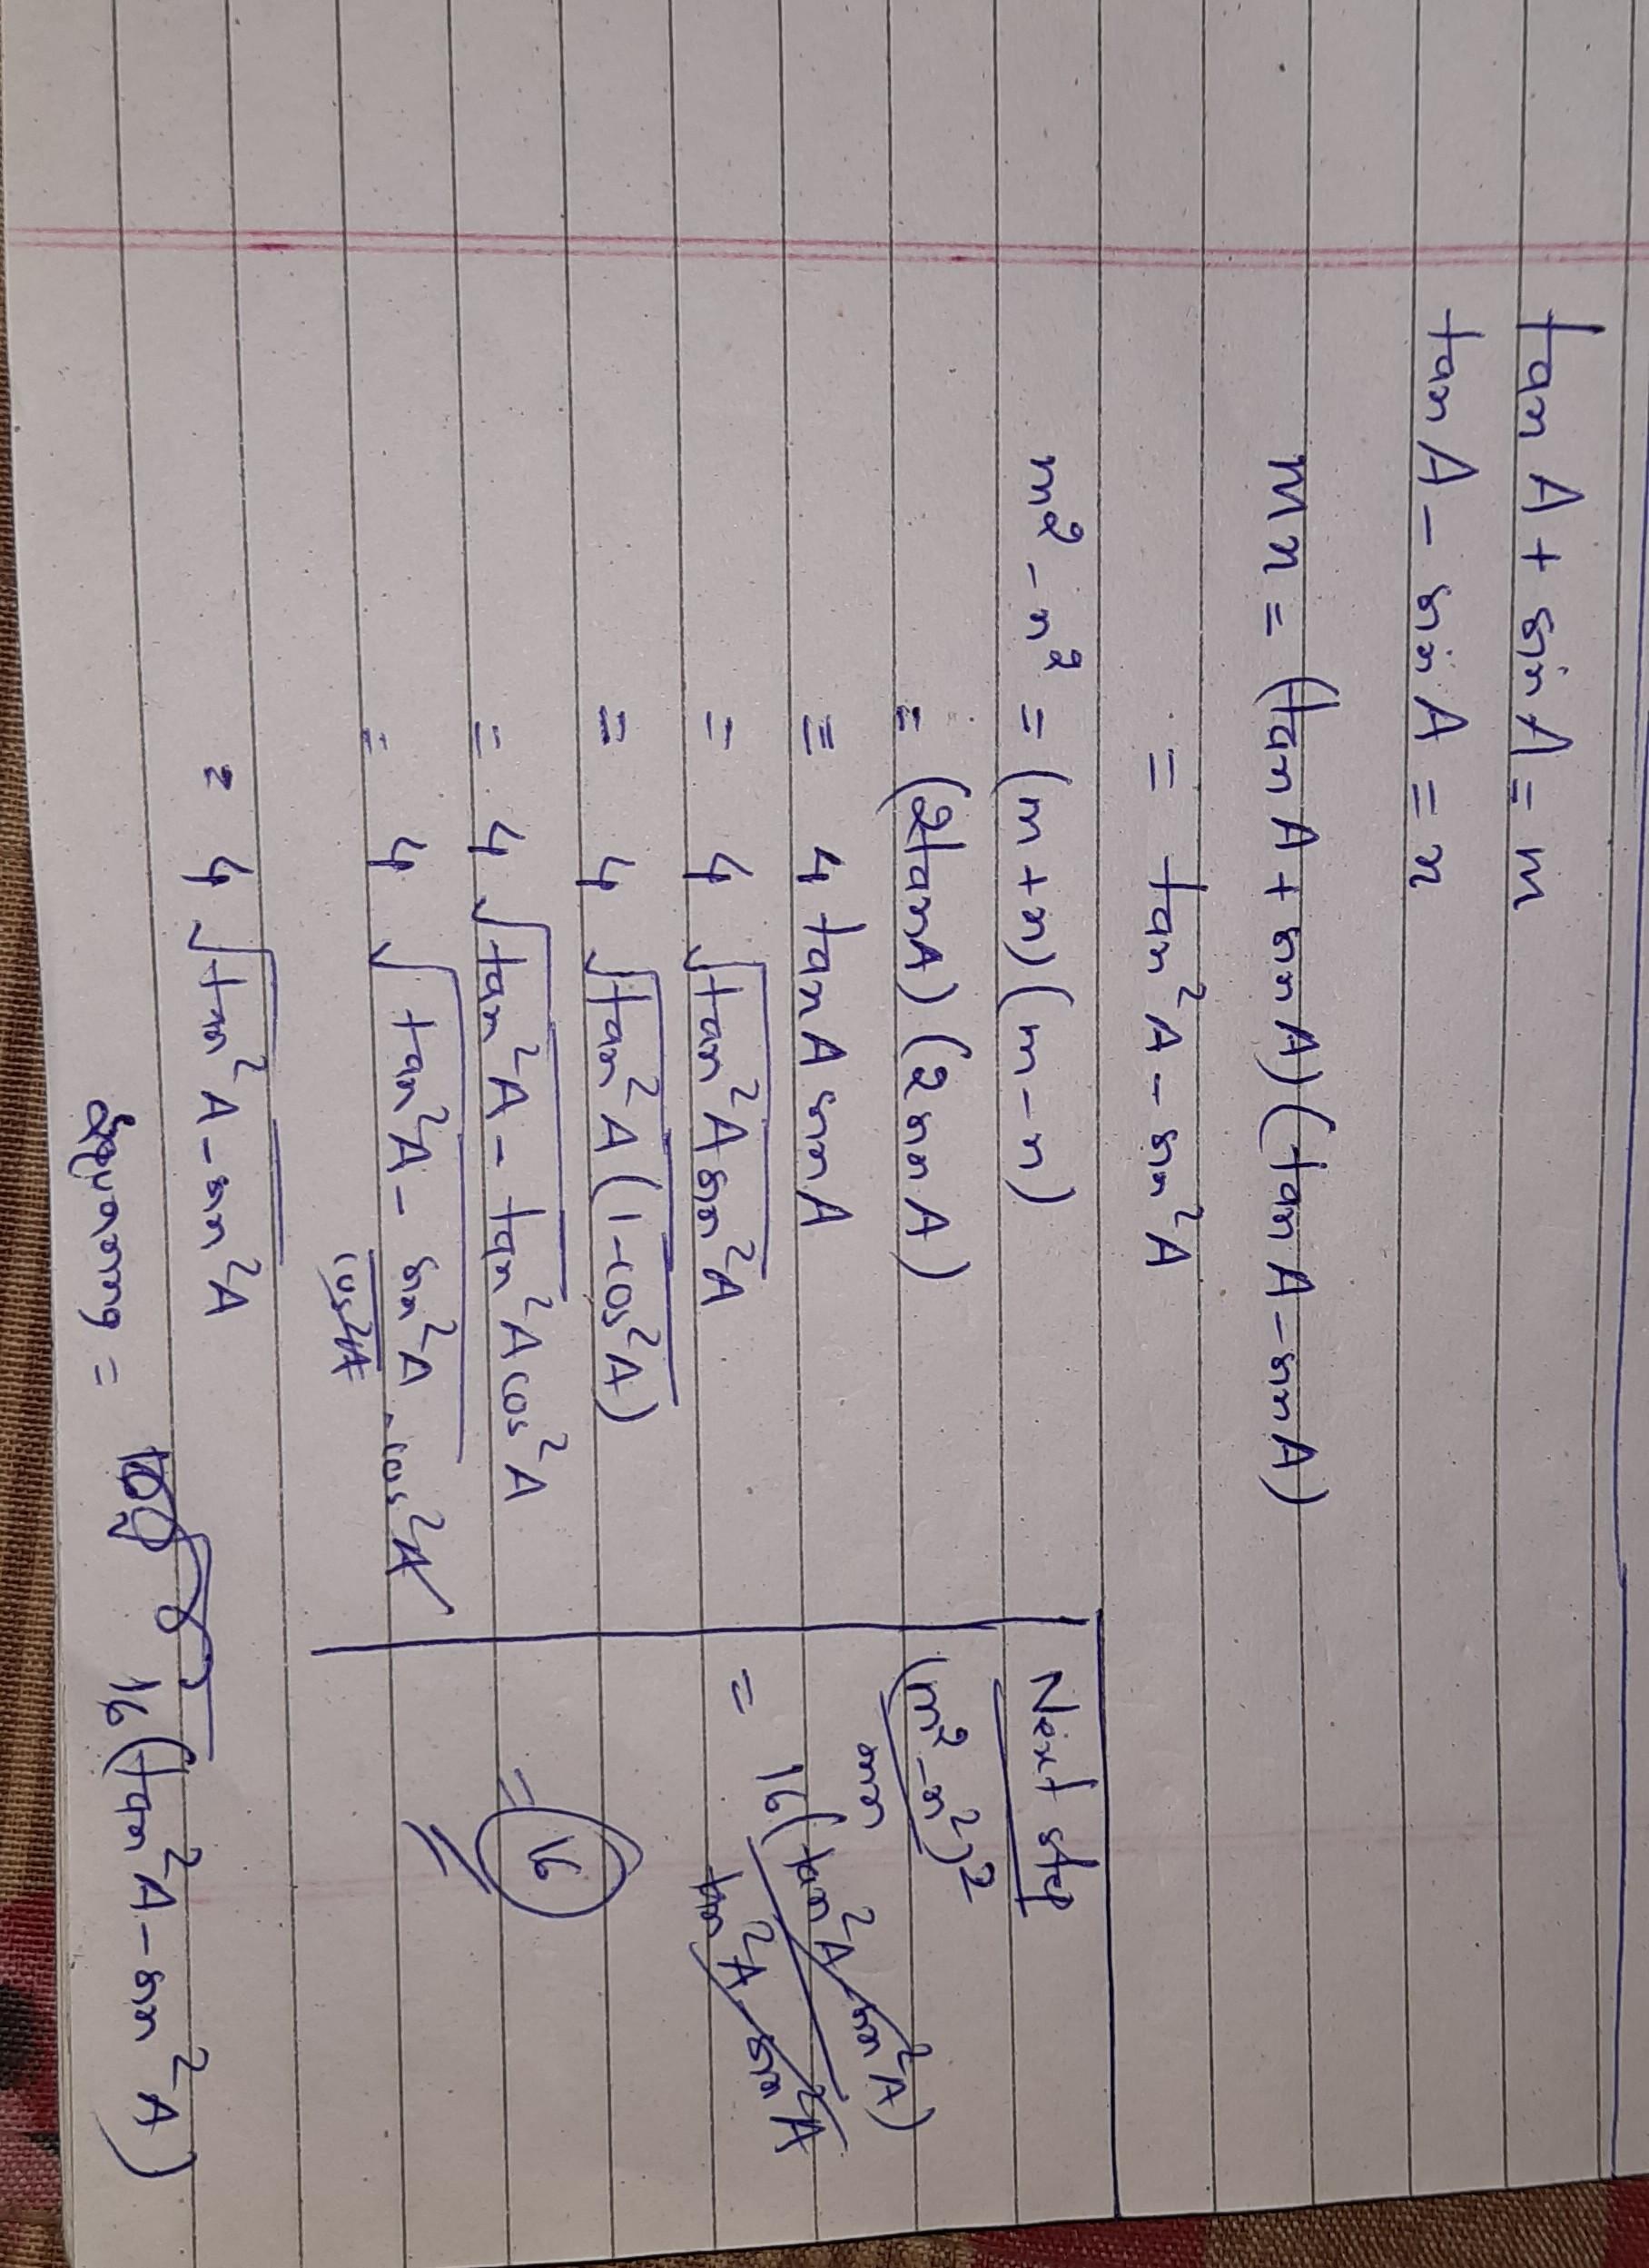 tan A + sin A = m
tan A - sin A = n
mn = (tan A + sin A) (tan A - sin A)
= tan²A - sin²A
m² - n² = (m + n) (m - n)
= (2tanA) (2 sin A)
= 4 tan A sin A
= 4 √tan²A sin²A
= 4 √tan²A (1 - cos²A)
= 4 √tan²A - tan²A cos²A
= 4 √tan²A - sin²A/cos²A · cos²A
= 4 √tan²A - sin²A
Squaring = 16 (tan²A - sin²A)
Next step
(m² - n²)²
mn
= 16 (tan²A sin²A)
tan²A sin²A
= 16